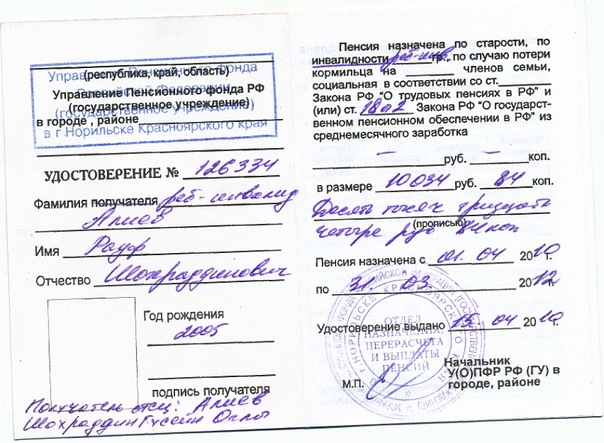 Управление Пенсионного фонда
Российской Федерации
(государственное учреждение)
в г Норильске Красноярского края
(республика, край, область)
Управление Пенсионного фонда РФ
(государственное учреждение)
в городе , районе
УДОСТОВЕРЕНИЕ № 126334
Фамилия получателя реб-инвалид
Алиев
Имя Рауф
Отчество Шохраддинович
Год рождения
2005
подпись получателя
Получатель отец: Алиев
Шохраддин Гусейн Оглы
Пенсия назначена по старости, по
инвалидности реб-инв гр., по случаю потери
кормильца на членов семьи,
социальная в соответствии со ст.
Закона РФ "О трудовых пенсиях в РФ" и
(или) ст. 18п2 Закона РФ "О государст-
венном пенсионном обеспечении в РФ" из
среднемесячного заработка
– руб. – коп.
в размере 10034 руб. 84 коп.
Десять тысяч тридцать
(прописью)
четыре руб 84 коп
Пенсия назначена с 01. 04 2010 г.
по 31. 03. 2012 г.
Удостоверение выдано 15. 04 2010 г.
ОТДЕЛ
НАЗНАЧЕНИЯ,
ПЕРЕРАСЧЕТА
И ВЫПЛАТЫ
ПЕНСИЙ
М.П.
Начальник
У(О)ПФР РФ (ГУ) в
городе, районе